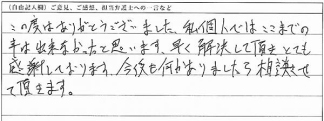 (自由記入欄) ご意見、ご感想、担当弁護士への一言など
この度はありがとうございました。私個人ではここまでの
事は出来なかったと思います。早く解決して頂きとても
感謝しております。今後も何かありましたら相談させ
て頂きます。